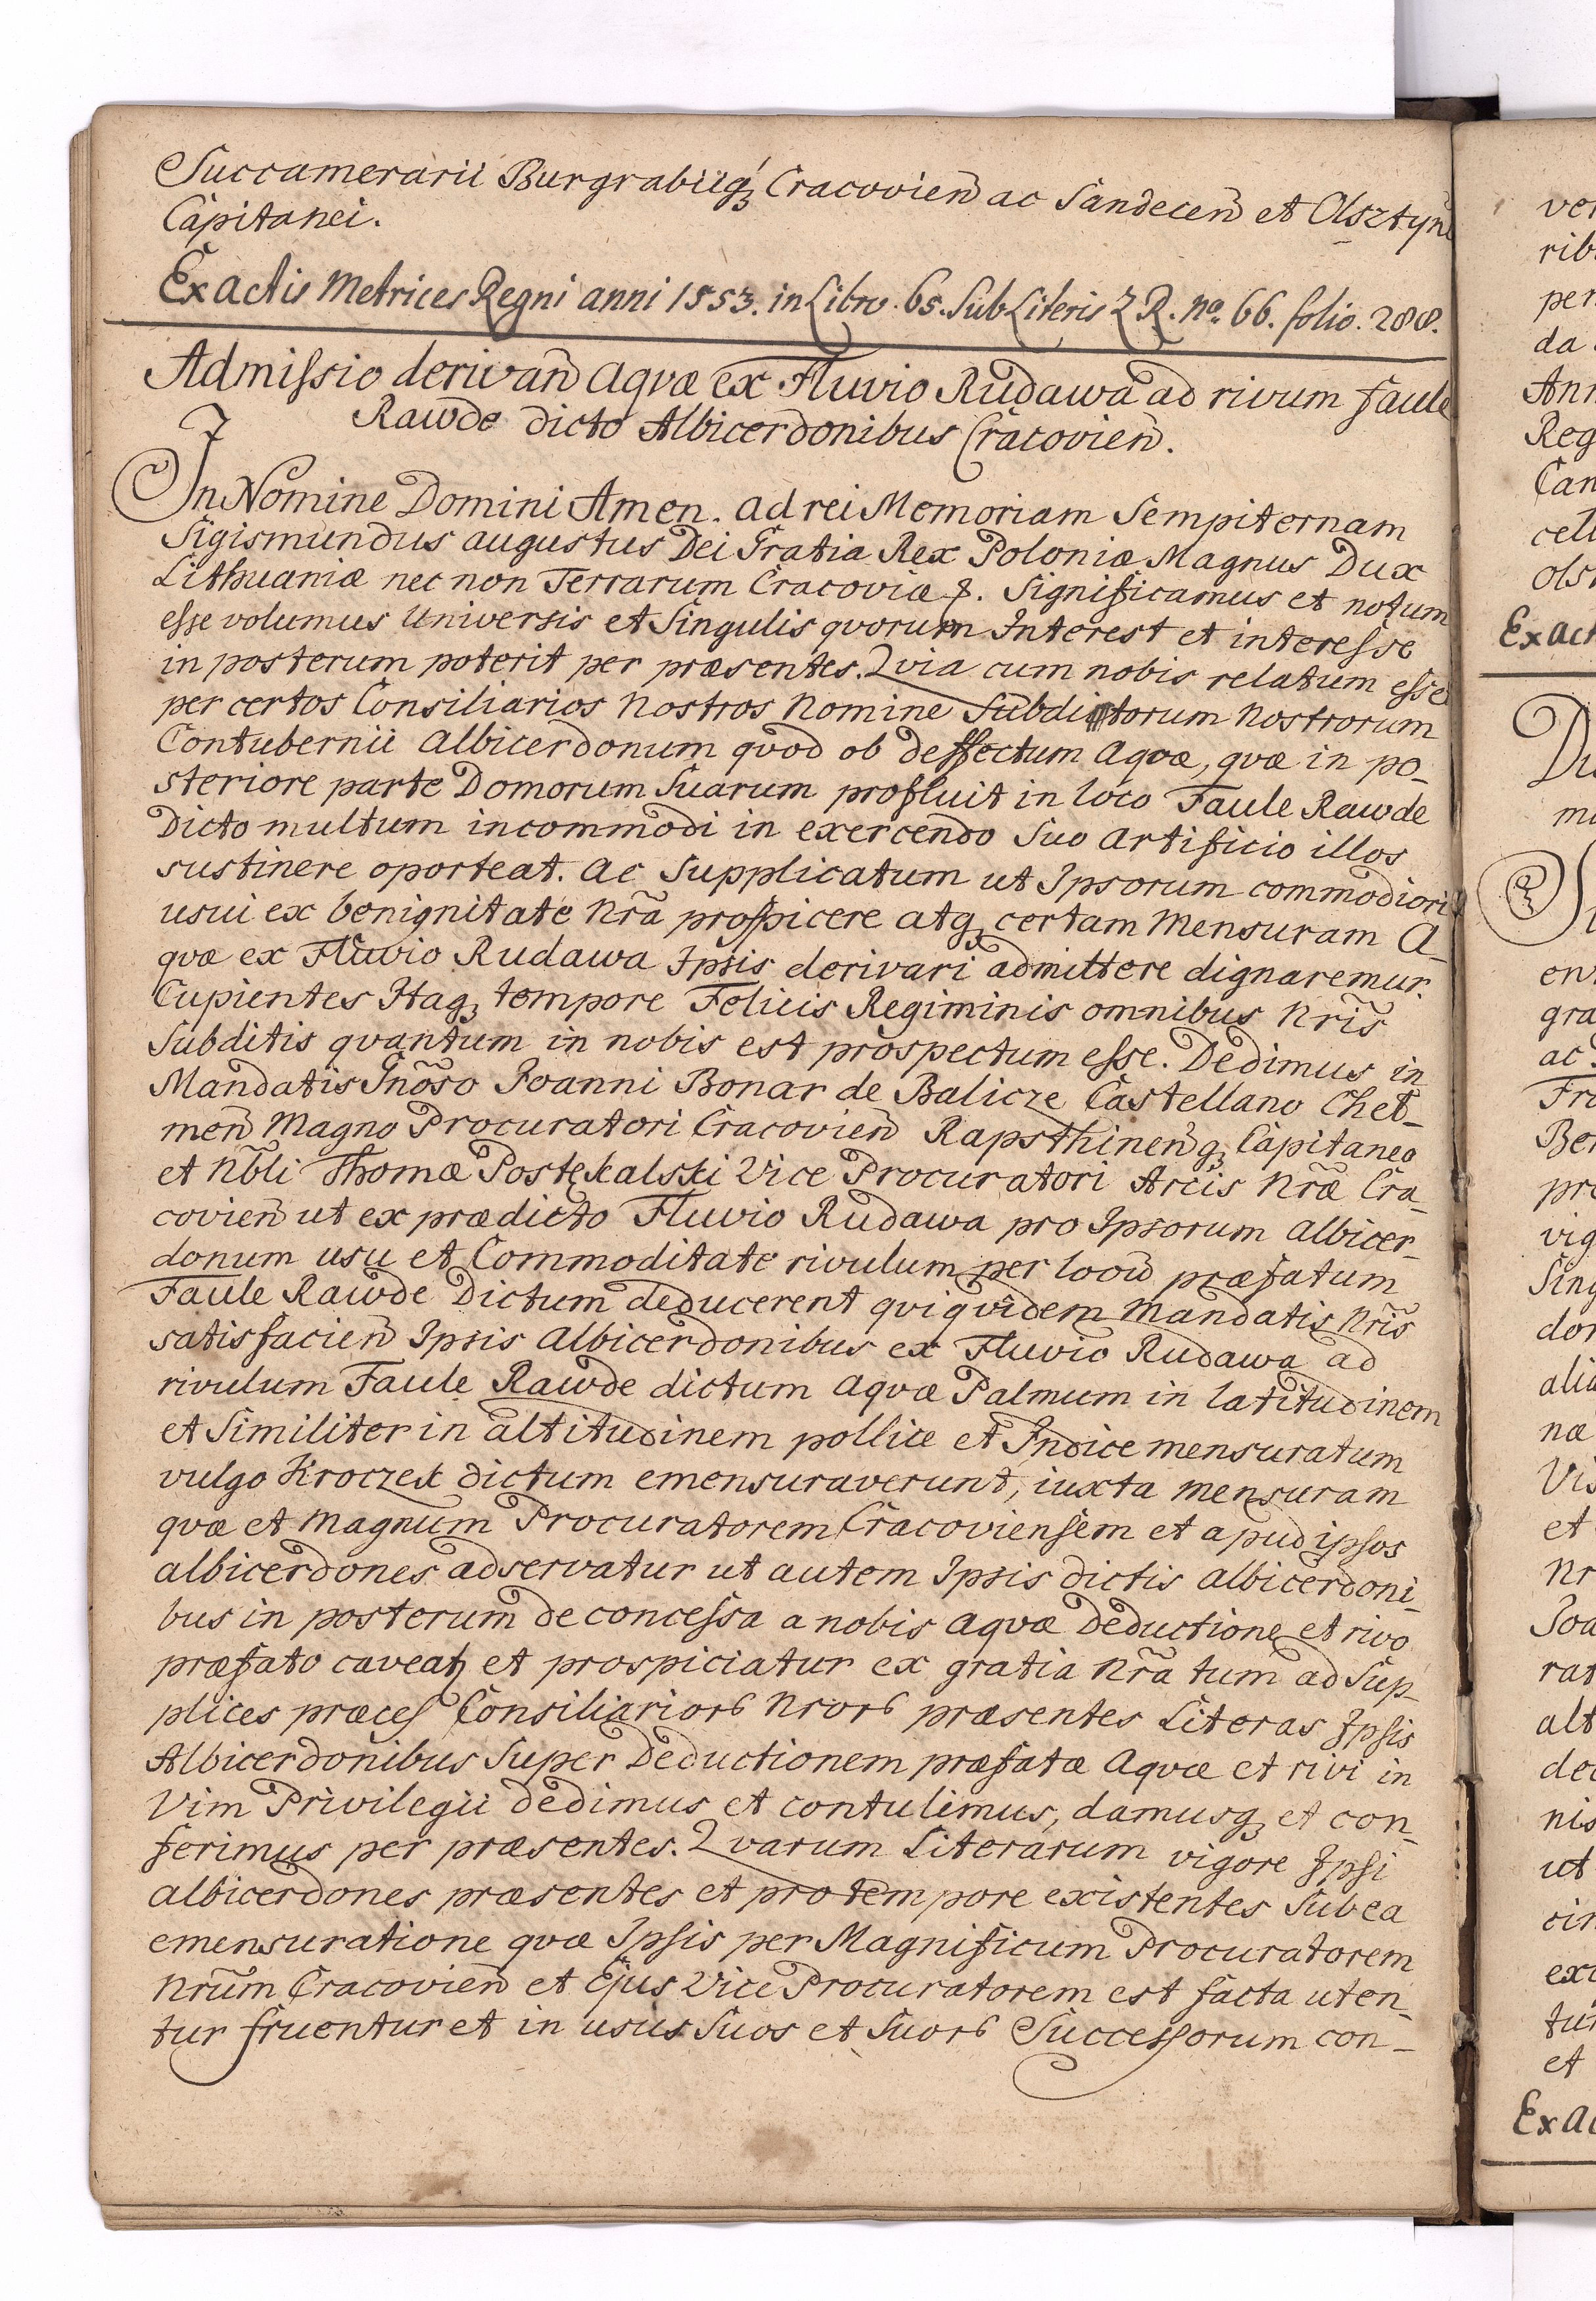 Succamerarii Burgrabiiq́ꝫ Cracovien̄ ac Sandecen̄ et Olsztyn̄
Capitanei.
Ex Actis Metrices Regni anni 1553. in Libro 65. Sub Literis Z R. no. 66. folio. 288.
Admissio derivan̄ Aqvæ ex Fluvio Rudawa ad rivum faule
Rawde dicto Albicerdonibus Cracovien̄.
In Nomine Domini Amen. Ad rei Memoriam Sempiternam
Sigismundus augustus Dei Gratia Rex Poloniæ Magnus Dux
Lithuaniæ nec non Terrarum Cracoviæ &. Significamus et notum
esse volumus Universis et Singulis qvorum Interest et interesse
in posterum poterit per præsentes. Qvia cum nobis relatum esse
per certos Consiliarios Nostros Nomine Subditorum Nostrorum
Contubernii Albicerdonum qvod ob deffectum Aqvæ, qvæ in po-
steriore parte Domorum Suarum profluit in loco Faule Rawde
Dicto multum incommodi in exercendo Suo Artificio illos
sustinere oporteat. Ac Supplicatum ut Ipsorum commodiori
usui ex benignitate Nr̃a prospicere atqꝫ certam Mensuram A-
qvæ ex Fluvio Rudawa Ipsis derivari admittere dignaremur.
Cupientes Itaqꝫ tempore Felicis Regiminis omnibus Nr̃is
Subditis qvantum in nobis est prospectum esse. Dedimus in
Mandatis Gñoso Joanni Bonar de Balicze Castellano Cheł-
men̄ Magno Procuratori Cracovien̄ Rapsthinen̄qꝫ Capitaneo
et Nb̃li Thomæ Postękalski Vice Procuratori Arcis Nr̃æ Cra-
covien̄ ut ex prædicto Fluvio Rudawa pro Ipsorum Albicer-
donum usu et Commoditate rivulum per locū præfatum
Faule Rawde Dictum deducerent qvi qvidem Mandatis Nr̃is
satisfacien̄ Ipsis Albicerdonibus ex Fluvio Rudawa ad
rivulum Faule Rawde dictum Aqvæ Palmum in latitudinem
et Similiter in altitudinem pollice et Indice mensuratum
vulgo Kroczek dictum emensuraverunt, iuxta mensuram
qvæ et Magnum Procuratorem Cracoviensem et apud ipsos
albicerdones adservatur ut autem Ipsis dictis Albicerdoni-
bus in posterum de concessa a nobis Aqvæ Deductione et rivo
præfato caveatꝫ et prospiciatur ex gratia Nr̃a tum ad Sup-
plices præces Consiliarior̃ Nror̃ præsentes Literas Ipsis
Albicerdonibus Super Deductionem præfatæ Aqvæ et rivi in
Vim Privilegii dedimus et contulimus, damusqꝫ et con-
ferimus per præsentes. Qvarum Literarum vigore Ipsi
albicerdones præsentes et pro tempore existentes Sub ea
emensuratione qvæ Ipsis per Magnificum Procuratorem
Nrūm Cracovien̄ et Ejus Vice Procuratorem est facta uten-
tur fruentur et in usus Suos et Suor̃ Successorum con-
Ex Act
Ex Ac